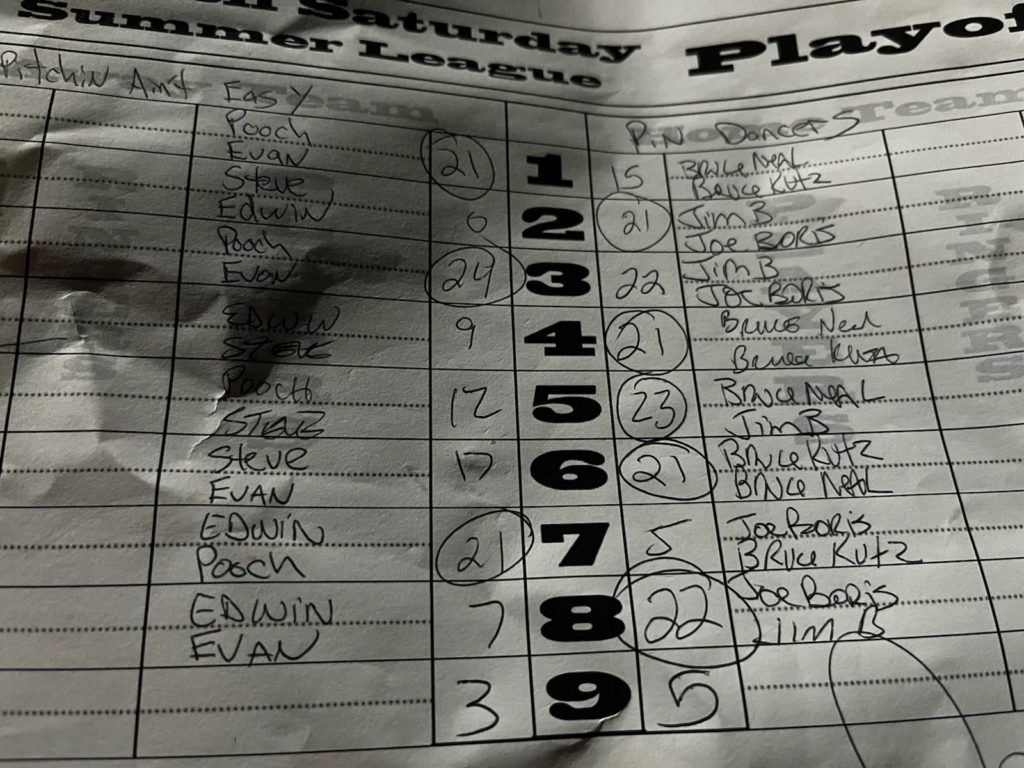 Saturday Playof
Summer League
Pitchin Am't Easy
Pin Dancers
Pooch
Evan 21 1 15 Bruce Neal
Bruce Kutz
Steve
Edwin 0 2 21 Jim B
Joe Boris
Pooch
Evan 24 3 22 Jim B
Joe Boris
EDWIN
STEVE 9 4 21 Bruce Neal
Bruce Kutz
POOCH
STEVE 12 5 23 Bruce NEAL
Jim B
Steve
EVAN 17 6 21 Bruce Kutz
Bruce NEAL
EDWIN
Pooch 21 7 5 Joe Boris
Bruce Kutz
EDWIN
EVAN 7 8 22 Joe Boris
Jim B
3 9 5